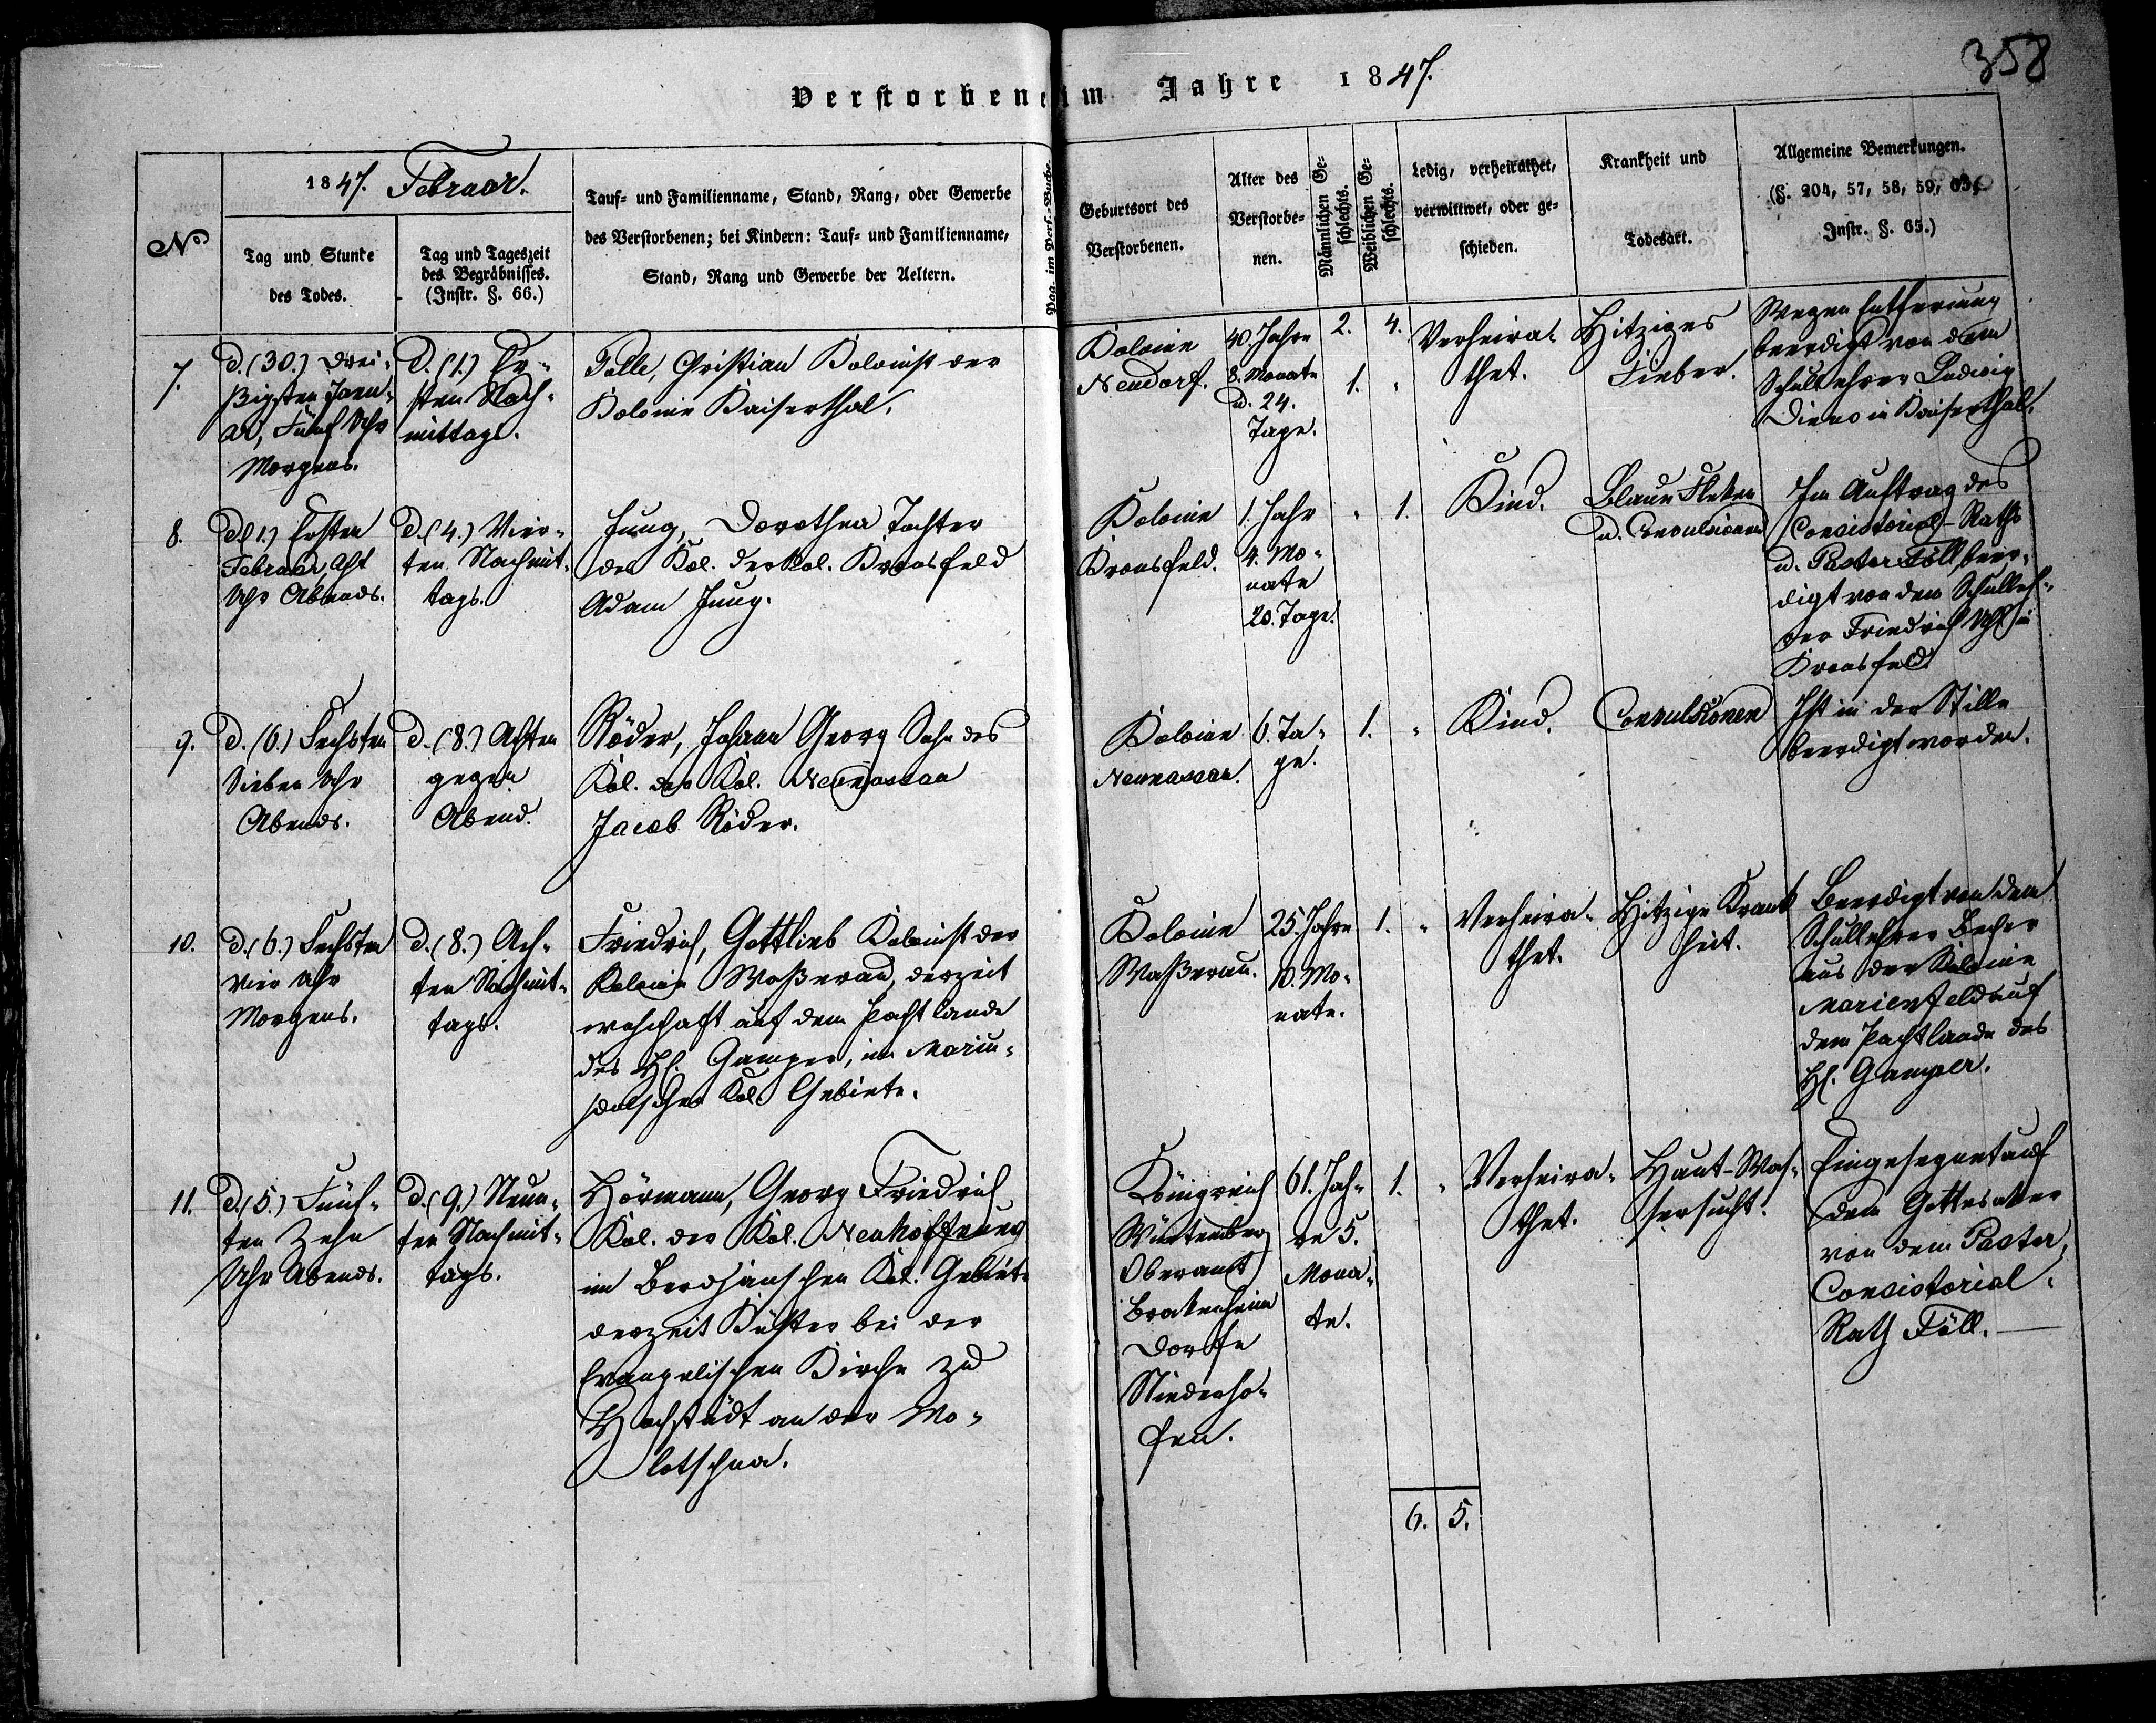 358
Verstorbene im Jahre 1847.
No
1847. Februar.
Tag und Stunde
des Todes.
Tag und Tageszeit
des Begräbnisses.
(Instr. §. 66.)
Tauf- und Familienname, Stand, Rang, oder Gewerbe
des Verstorbenen; bei Kindern: Tauf- und Familienname,
Stand, Rang und Gewerbe der Aeltern.
Pag. im Pers.-Buche.
Geburtsort des
Verstorbenen.
Alter des
Verstorbe-
nen.
Männlichen Ge-
schlechts.
Weiblichen Ge-
schlechts.
Ledig, verheirathet,
verwittwet, oder ge-
schieden.
Krankheit und
Todesart.
Allgemeine Bemerkungen.
(§. 204, 57, 58, 59,
Instr. §. 65.)
2. 4.
7.
d. (30.) Drei-
ßigsten Janu-
ar, Fünf Uhr
Morgens.
d. (1.) Er-
sten Nach-
mittags.
Falle, Christian Kolonist der
Kolonie Kaiserthal.
Kolonie
Neudorf.
40. Jahre
8. Monate
u. 24.
Tage.
1. "
Verheira-
thet.
Hitziges
Fieber.
Wegen Entfernung
beerdigt von dem
Schullehrer Ludwig
in Kaiserthal.
8.
d. (1.) Ersten
Februar Acht
Uhr Abends.
d. (4.) Vier-
ten Nachmit-
tags.
Jung, Dorothea Tochter
des Kol. der Kol. Kronsfeld
Adam Jung.
Kolonie
Kronsfeld.
1. Jahr
4. Mo-
nate
20. Tage.
" 1.
Kind.
Blaue Fleken
u. Convulsionen
Im Auftrag des
Consistorial-Raths
u. Pastor Föll, beer-
digt von dem Schulleh-
rer Friedrich Uhl in
Kronsfeld.
9.
d. (6.) Sechsten
Sieben Uhr
Abends.
d. (8.) Achten
gegen
Abend.
Röder, Johann Georg Sohn des
Kol. der Kol. Neunassau
Jacob Röder.
Kolonie
Neunassau.
6. Ta-
ge.
1. "
Kind.
Convulsionen
Ist in der Stille
beerdigt worden.
10.
d. (6.) Sechsten
Vier Uhr
Morgens.
d. (8.) Ach-
ten Nachmit-
tags.
Friedrich, Gottlieb Kolonist der
Kolonie Waßerau, derzeit
wohnhaft auf dem Pachtlande
des H. Gamper, im Mariu-
polschen Kol. Gebiete.
Kolonie
Waßerau.
25. Jahre
10. Mo-
nate.
1. "
Verheira-
thet.
Hitzige Krank
heit.
Beerdigt von dem
Schullehrer Becher
aus der Kolonie
Marienfeld auf
dem Pachtlande des
H. Gamper.
11.
d. (5.) Fünf-
ten Zehn
Uhr Abends.
d. (9.) Neun-
ten Nachmit-
tags.
Hörmann, Georg Friedrich
Kol. der Kol. Neuhoffnung
im Berdjanschen Kol. Gebiet
derzeit Küster bei der
Evangelischen Kirche zu
Hochstädt an der Mo-
lotschna.
Königreich
Würtemberg
Oberamt
Brakenheim
Dorfe
Niederho-
fen.
61. Jah-
re 5.
Mona-
te.
1. "
Verheira-
thet.
Haut-Was-
sersucht.
Eingesegnet auf
dem Gottesaker
von dem Pastor,
Consistorial-
Rath Föll.
6. 5.